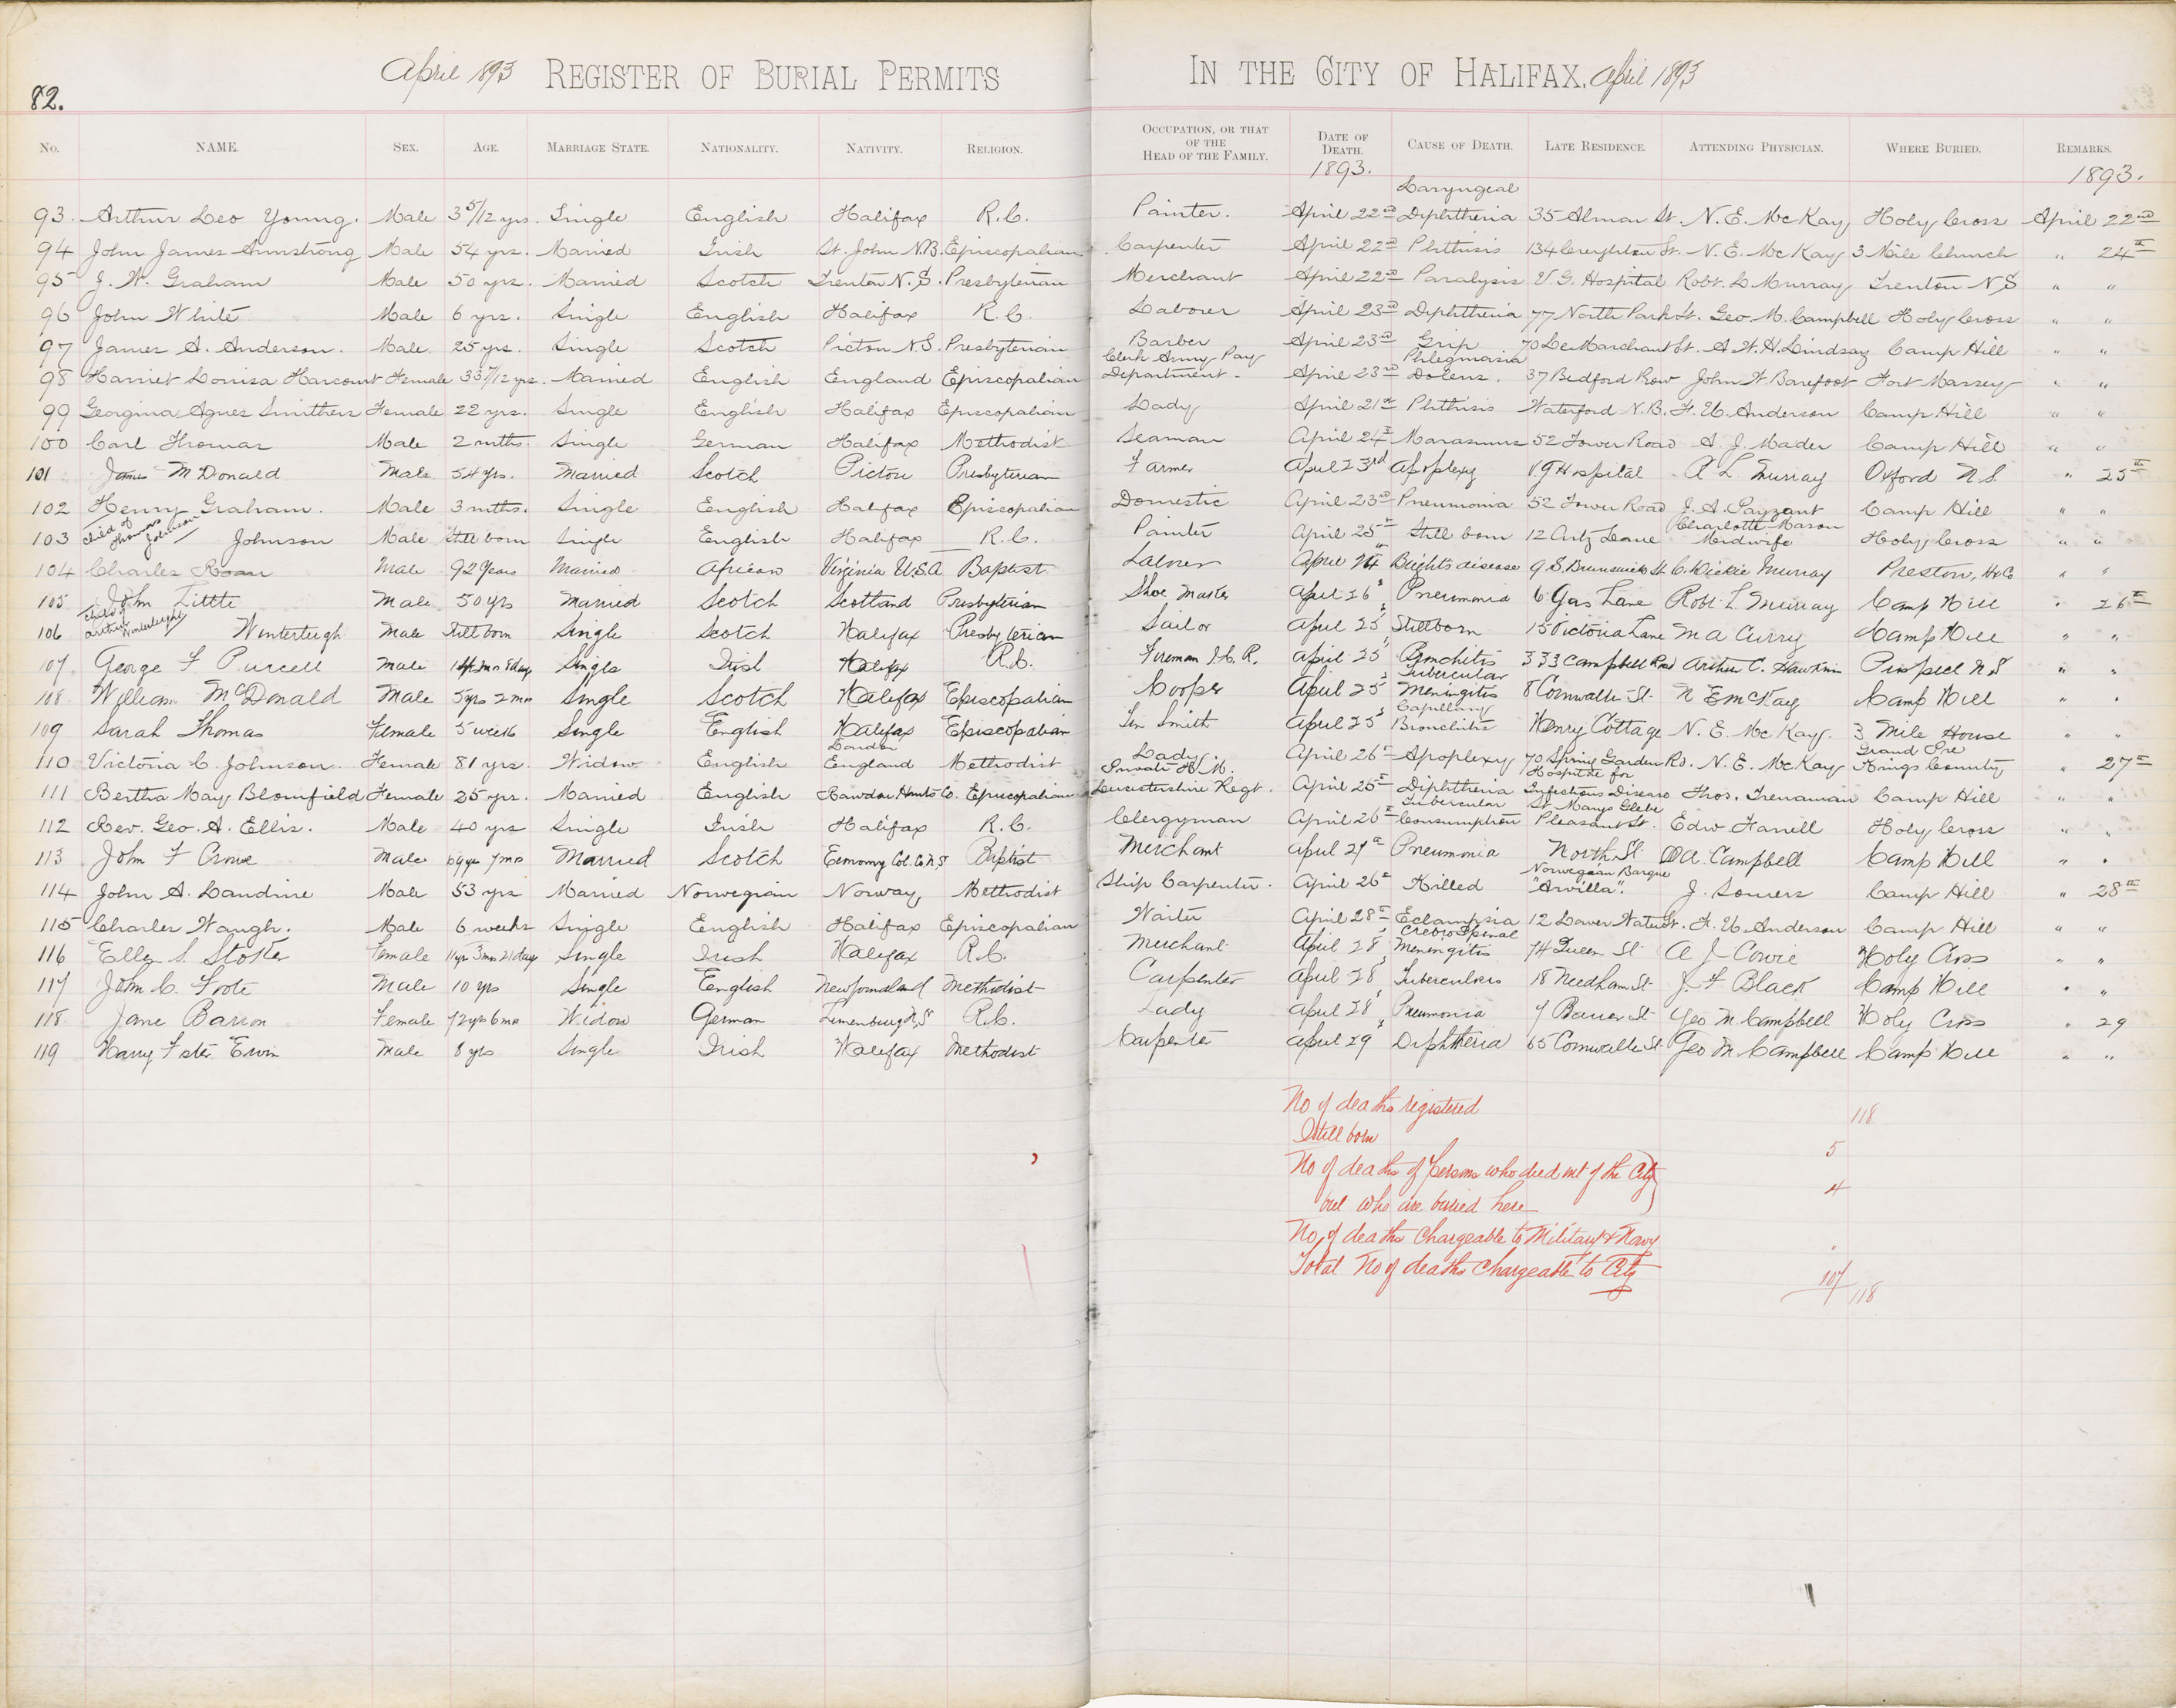 82.
April 1893 REGISTER OF BURIAL PERMITS IN THE CITY OF HALIFAX. April 1893
No. NAME. SEX. AGE. MARRIAGE STATE. NATIONALITY. NATIVITY. RELIGION. OCCUPATION, OR THAT OF THE HEAD OF THE FAMILY. DATE OF DEATH. CAUSE OF DEATH. LATE RESIDENCE. ATTENDING PHYSICIAN. WHERE BURIED. REMARKS.
1893. 1893.
93. Arthur Leo Young. Male 3 5/12 yrs. Single English Halifax R.C. Painter. April 22nd Laryngeal Diphtheria 35 Almon St. N. E. McKay Holy Cross April 22nd
94 John James Armstrong Male 54 yrs. Married Irish St. John N.B. Episcopalian Carpenter April 22nd Phthisis 134 Creighton St. N. E. McKay 3 Mile Church " 24th
95 J. W. Graham Male 50 yrs. Married Scotch Trenton N.S. Presbyterian Merchant April 22nd Paralysis V. G. Hospital Robt. L. Murray Trenton N.S " "
96 John White Male 6 yrs. Single English Halifax R.C. Laborer April 23rd Diphtheria 77 North Park St. Geo. M. Campbell Holy Cross " "
97 James A. Anderson. Male 25 yrs. Single Scotch Pictou N.S. Presbyterian Barber April 23rd Grip 70 LeMarchant St. A. W. H. Lindsay Camp Hill " "
98 Harriet Louisa Harcourt Female 33 7/12 yrs. Married English England Episcopalian Clerk Army Pay Department. April 23rd Phlegmasia Dolens. 37 Bedford Row John W. Barefoot Fort Massey " "
99 Georgina Agnes Smithers Female 22 yrs. Single English Halifax Episcopalian Lady April 21st Phthisis Waterford N.B. F. U. Anderson Camp Hill " "
100 Carl Thomas Male 2 mths. Single German Halifax Methodist Seaman April 24th Marasmus 52 Tower Road A. J. Mader Camp Hill " "
101 James McDonald Male 54 yrs. Married Scotch Pictou Presbyterian Farmer April 23rd Apoplexy V. G Hospital R L. Murray Oxford N.S. " 25th
102 Henry Graham. Male 3 mths. Single English Halifax Episcopalian Domestic April 23rd Pneumonia 52 Tower Road J. A. Payzant Camp Hill " "
103 Child of Thomas Johnson Johnson Male Still born Single English Halifax R.C. Painter April 25th Still born 12 Artz Lane Charlotte Mason Midwife Holy Cross " "
104 Charles Roan Male 92 Years Married African Virginia U.S.A Baptist Laborer April 24th Brights disease 9 S. Brunswick St C. Dickie Murray Preston, Hx Co " "
105 John Little Male 50 yrs Married Scotch Scotland Presbyterian Shoe Maker April 26 Pneumonia 6 Gas Lane Robt. L. Murray Camp Hill " 26th
106 Child of Arthur Winterleigh Winterleigh Male Still born Single Scotch Halifax Presbyterian Sailor April 25 Stillborn 15 Victoria Lane M A Curry Camp Hill " "
107 George F Purcell Male Single Irish Halifax R.C. Fireman I.C.R. April 25 Bronchitis 333 Campbell Road Arthur C. Hawkins Prospect N.S " "
108 William McDonald Male 5 yrs 2 mos Single Scotch Halifax Episcopalian Cooper April 25 Tubercular Meningitis 8 Cornwallis St N E McKay Camp Hill " "
109 Sarah Thomas Female 5 weeks Single English Halifax Episcopalian Tin Smith April 25 Capillary Bronchitis Henry Cottage N. E. McKay. 3 Mile House " "
110 Victoria C. Johnson. Female 81 yrs. Widow English London England Methodist Lady April 26th Apoplexy 70 Spring Garden Rd. N. E. McKay Grand Pre Kings County " 27th
111 Bertha May Blomfield Female 25 yrs. Married English Rawdon Hants Co. Episcopalian Private H. M. Leicestershire Regt. April 25th Diphtheria Hospital for Infectious Diseases Thos. Trenaman Camp Hill " "
112 Rev. Geo. A. Ellis. Male 40 yrs Single Irish Halifax R.C. Clergyman April 26th Tubercular Consumption St. Marys Glebe Pleasant St. Edw Farrell Holy Cross " "
113 John F Crowe Male 69 yrs 7 mos Married Scotch Economy Col. Co N.S Baptist Merchant April 27th Pneumonia North St D A. Campbell Camp Hill " "
114 John A. Laudine Male 53 yrs Married Norwegian Norway Methodist Ship Carpenter. April 26th Killed Norwegian Barque "Arvilla". J. Somers Camp Hill " 28th
115 Charles Waugh. Male 6 weeks Single English Halifax Episcopalian Waiter April 28th Eclampsia 12 Lower Water St. F. U. Anderson Camp Hill " "
116 Ellen S. Stokes Female 11 yrs 3 mos 21 days Single Irish Halifax R.C. Merchant April 28 Crebro Spinal Meningitis 74 Queen St A J Cowie Holy Cross " "
117 John C. Foote Male 10 yrs Single English Newfoundland Methodist Carpenter April 28 Tuberculosis 18 Needham St J. F Black Camp Hill " "
118 Jane Barron Female 72 yrs 6 mos Widow German Lunenburg N.S R.C. Lady April 28 Pneumonia 7 Bauer St Geo M Campbell Holy Cross " 29
119 Harry Foster Ervin Male 8 yrs Single Irish Halifax Methodist Carpenter April 29 Diphtheria 65 Cornwallis St Geo M Campbell Camp Hill " "
No of deaths registered 118
Still born 5
No of deaths of persons who died out of the City
but who are buried here 4
No. of deaths chargeable to Military & Navy "
Total No of deaths chargeable to City 107 118